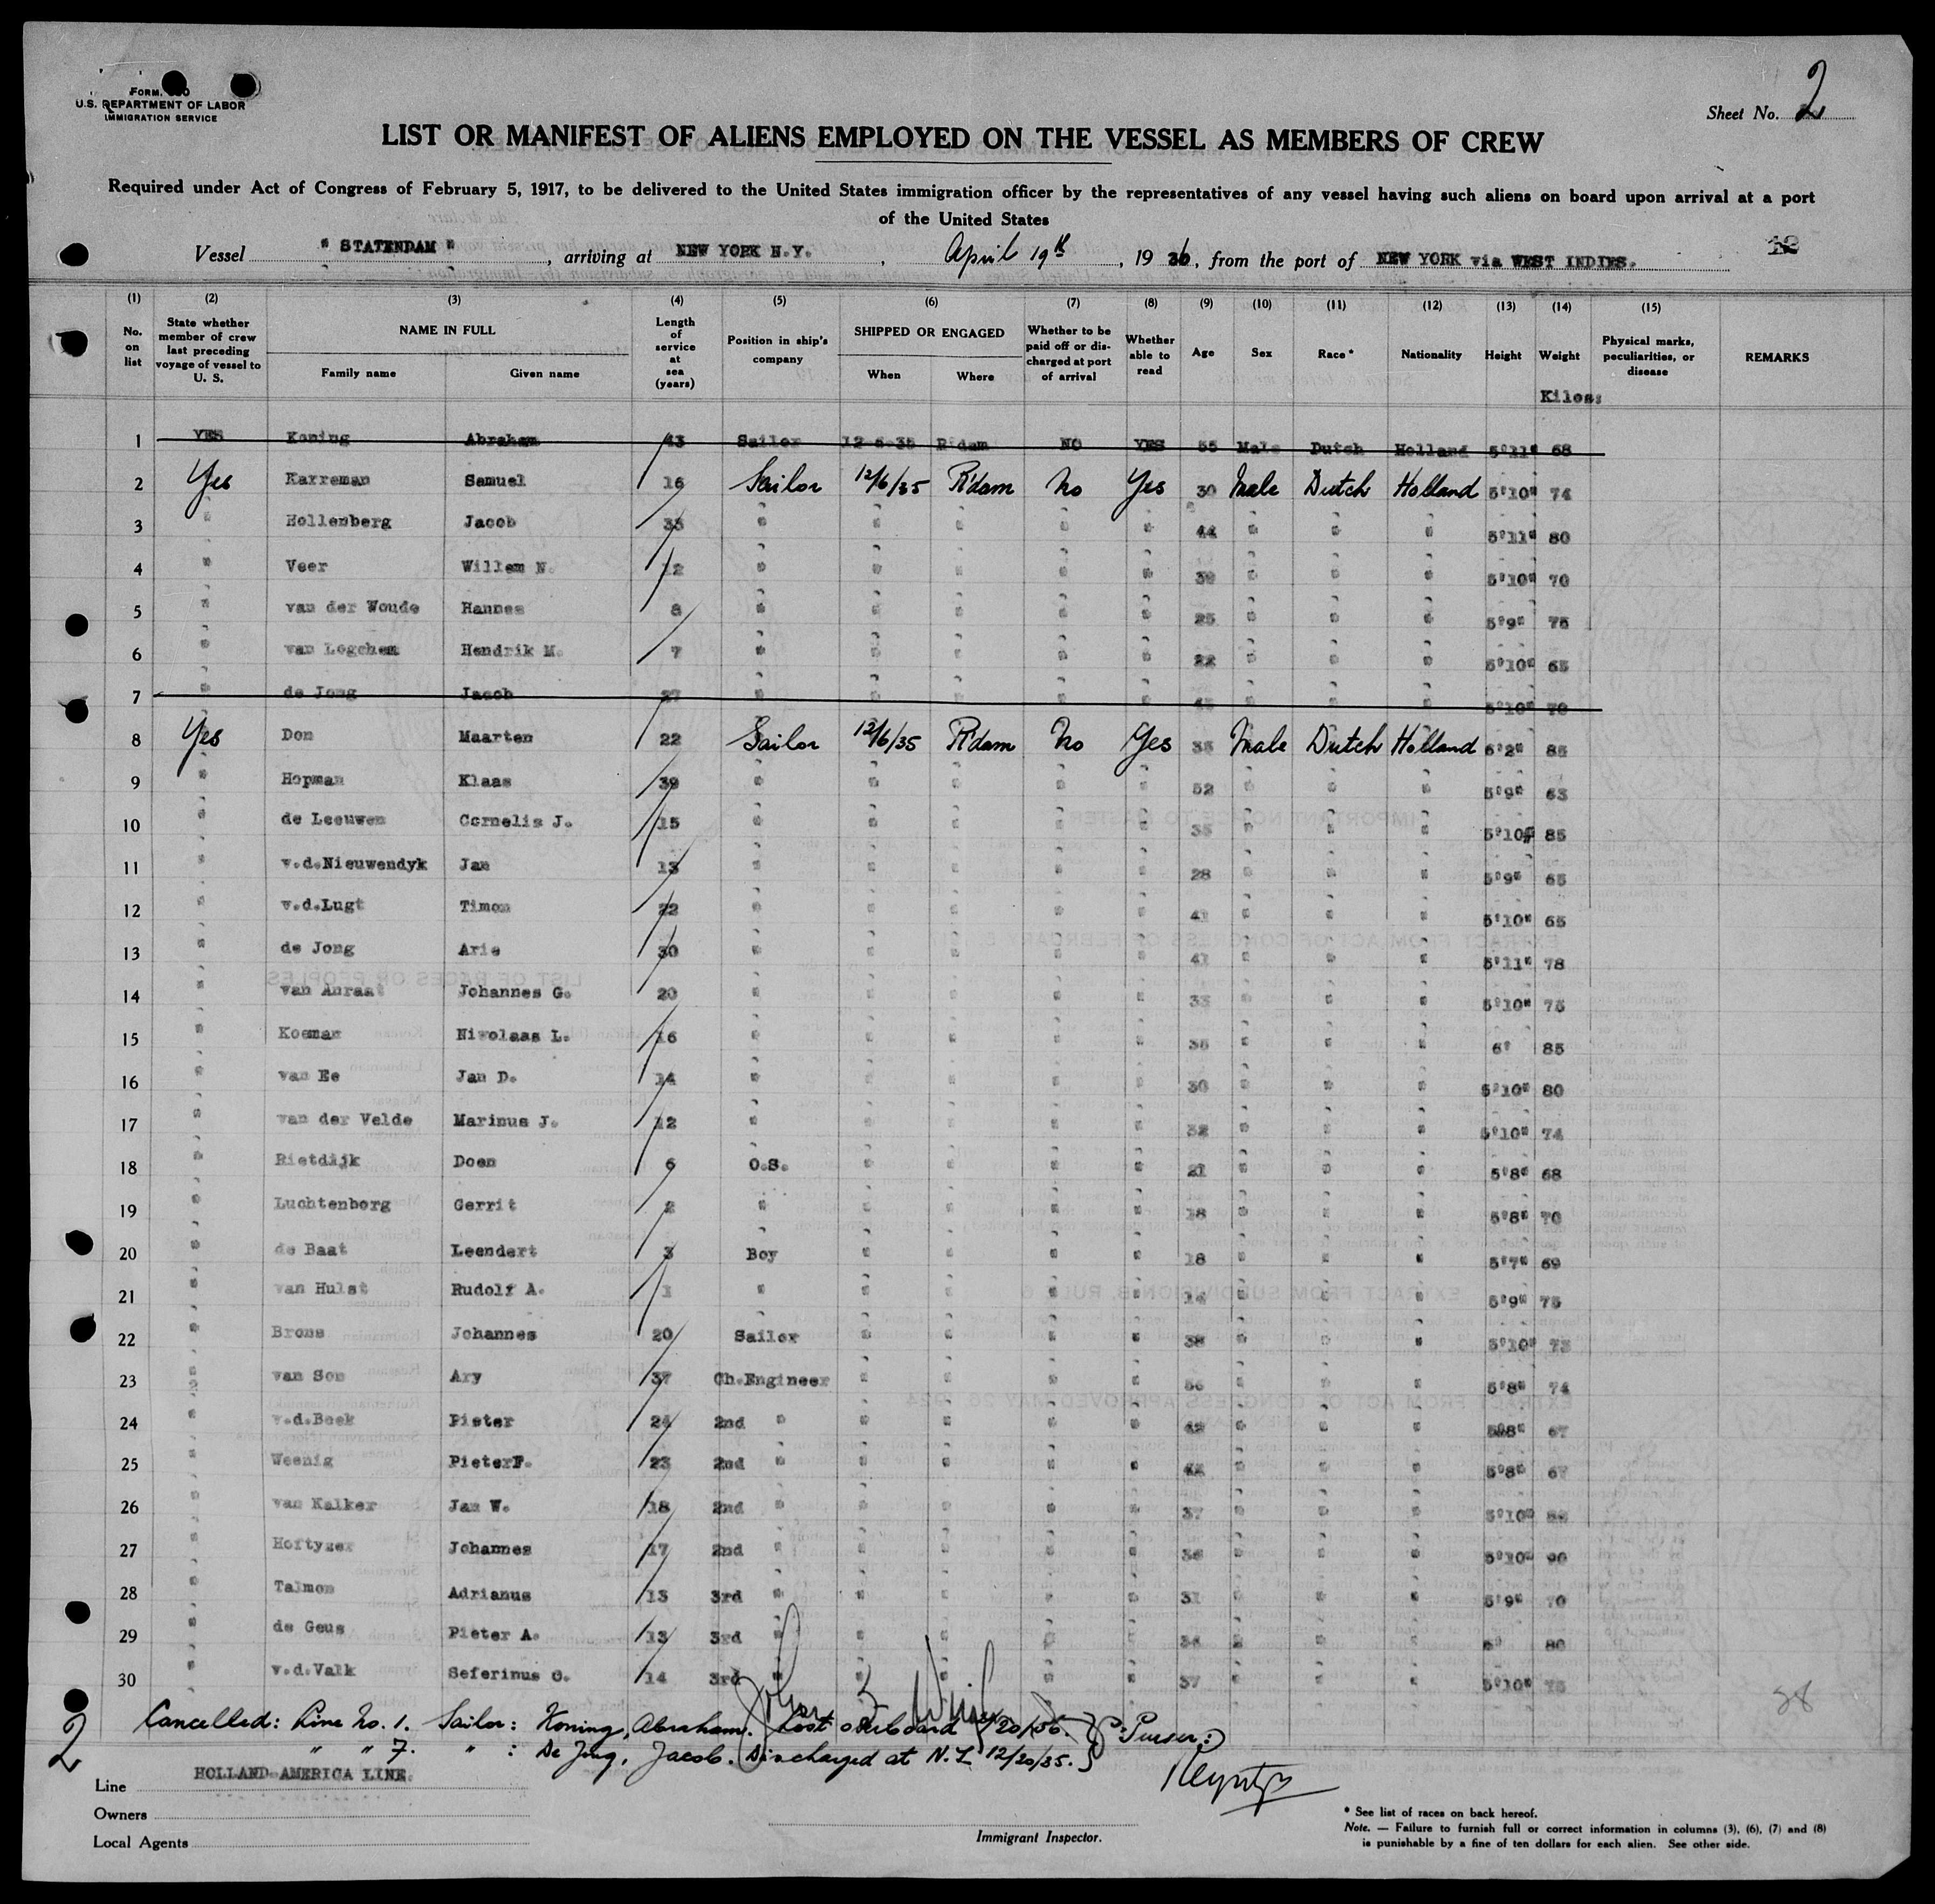 FORM.
U.S. DEPARTMENT OF LABOR
IMMIGRATION SERVICE
Sheet No. 2
LIST OR MANIFEST OF ALIENS EMPLOYED ON THE VESSEL AS MEMBERS OF CREW
Required under Act of Congress of February 5, 1917, to be delivered to the United States immigration officer by the representatives of any vessel having such aliens on board upon arrival at a port
of the United States
Vessel " STATENDAM ", arriving at NEW YORK N.Y., April 19th, 1936, from the port of NEW YORK via WEST INDIES.
(1) (2) (3) (4) (5) (6) (7) (8) (9) (10) (11) (12) (13) (14) (15)
No. on list | State whether member of crew last preceding voyage of vessel to U. S. | NAME IN FULL Family name Given name | Length of service at sea (years) | Position in ship's company | SHIPPED OR ENGAGED When Where | Whether to be paid off or discharged at port of arrival | Whether able to read | Age | Sex | Race * | Nationality | Height | Weight | Physical marks, peculiarities, or disease | REMARKS
Kilos:
1 YES Koning Abraham 43 Sailor 12-6-35 R'dam NO YES 55 Male Dutch Holland 5'11" 68
2 Yes Karreman Samuel 16 Sailor 12/6/35 R'dam No Yes 30 Male Dutch Holland 5'10" 74
3 " Hollenberg Jacob 33 " " " " " 44 " " " 5'11" 80
4 " Veer Willem N. 12 " " " " " 39 " " " 5'10" 70
5 " van der Woude Hannes 8 " " " " " 25 " " " 5'9" 75
6 " van Logchem Hendrik M. 7 " " " " " 22 " " " 5'10" 65
7 " de Jong Jacob 27 " " " " " " " " 5'10" 70
8 Yes Don Maarten 22 Sailor 12/6/35 R'dam No Yes 35 Male Dutch Holland 6'2" 85
9 " Hopman Klaas 39 " " " " " 52 " " " 5'9" 63
10 " de Leeuwen Cornelis J. 15 " " " " " 35 " " " 5'10" 85
11 " v.d.Nieuwendyk Jan 13 " " " " " 28 " " " 5'9" 65
12 " v.d.Lugt Timon 22 " " " " " 41 " " " 5'10" 65
13 " de Jong Arie 30 " " " " " 41 " " " 5'11" 78
14 " van Anraat Johannes G. 20 " " " " " 33 " " " 5'10" 75
15 " Koeman Nivolaas L. 16 " " " " " 35 " " " 6' 85
16 " van Ee Jan D. 14 " " " " " 30 " " " 5'10" 80
17 " van der Velde Marinus J. 12 " " " " " 32 " " " 5'10" 74
18 " Rietdijk Doen 6 O.S. " " " " 21 " " " 5'8" 68
19 " Luchtenborg Gerrit 2 " " " " " 18 " " " 5'8" 70
20 " de Baat Leendert 3 Boy " " " " 18 " " " 5'7" 69
21 " van Hulst Rudolf A. 1 " " " " " " " " 5'9" 75
22 " Brons Johannes 20 Sailor " " " " 38 " " " 5'10" 73
23 " van Son Ary 37 Ch.Engineer " " " " 56 " " " 5'8" 74
24 " v.d.Beek Pieter 24 2nd " " " " " 42 " " " 5'8" 67
25 " Weenig PieterF. 23 2nd " " " " " " " " 5'8" 67
26 " van Kalker Jan W. 18 2nd " " " " " 37 " " " 5'10"
27 " Hoftyzer Johannes 17 2nd " " " " " 36 " " " 5'10" 90
28 " Talmon Adrianus 13 3rd " " " " " 31 " " " 5'9" 70
29 " de Geus Pieter A. 13 3rd " " " " " " " " 6' 80
30 " v.d.Valk Seferinus C. 14 3rd " " " " " 37 " " " 5'10" 75
Cancelled: Line No. 1. Sailor: Koning, Abraham. Lost overboard
" " 7. " : De Jong, Jacob. Discharged at N.Y. 12/20/35. } Purser:
2
Line HOLLAND AMERICA LINE.
Owners
Local Agents
Immigrant Inspector.
* See list of races on back hereof.
Note. — Failure to furnish full or correct information in columns (3), (6), (7) and (8)
is punishable by a fine of ten dollars for each alien. See other side.